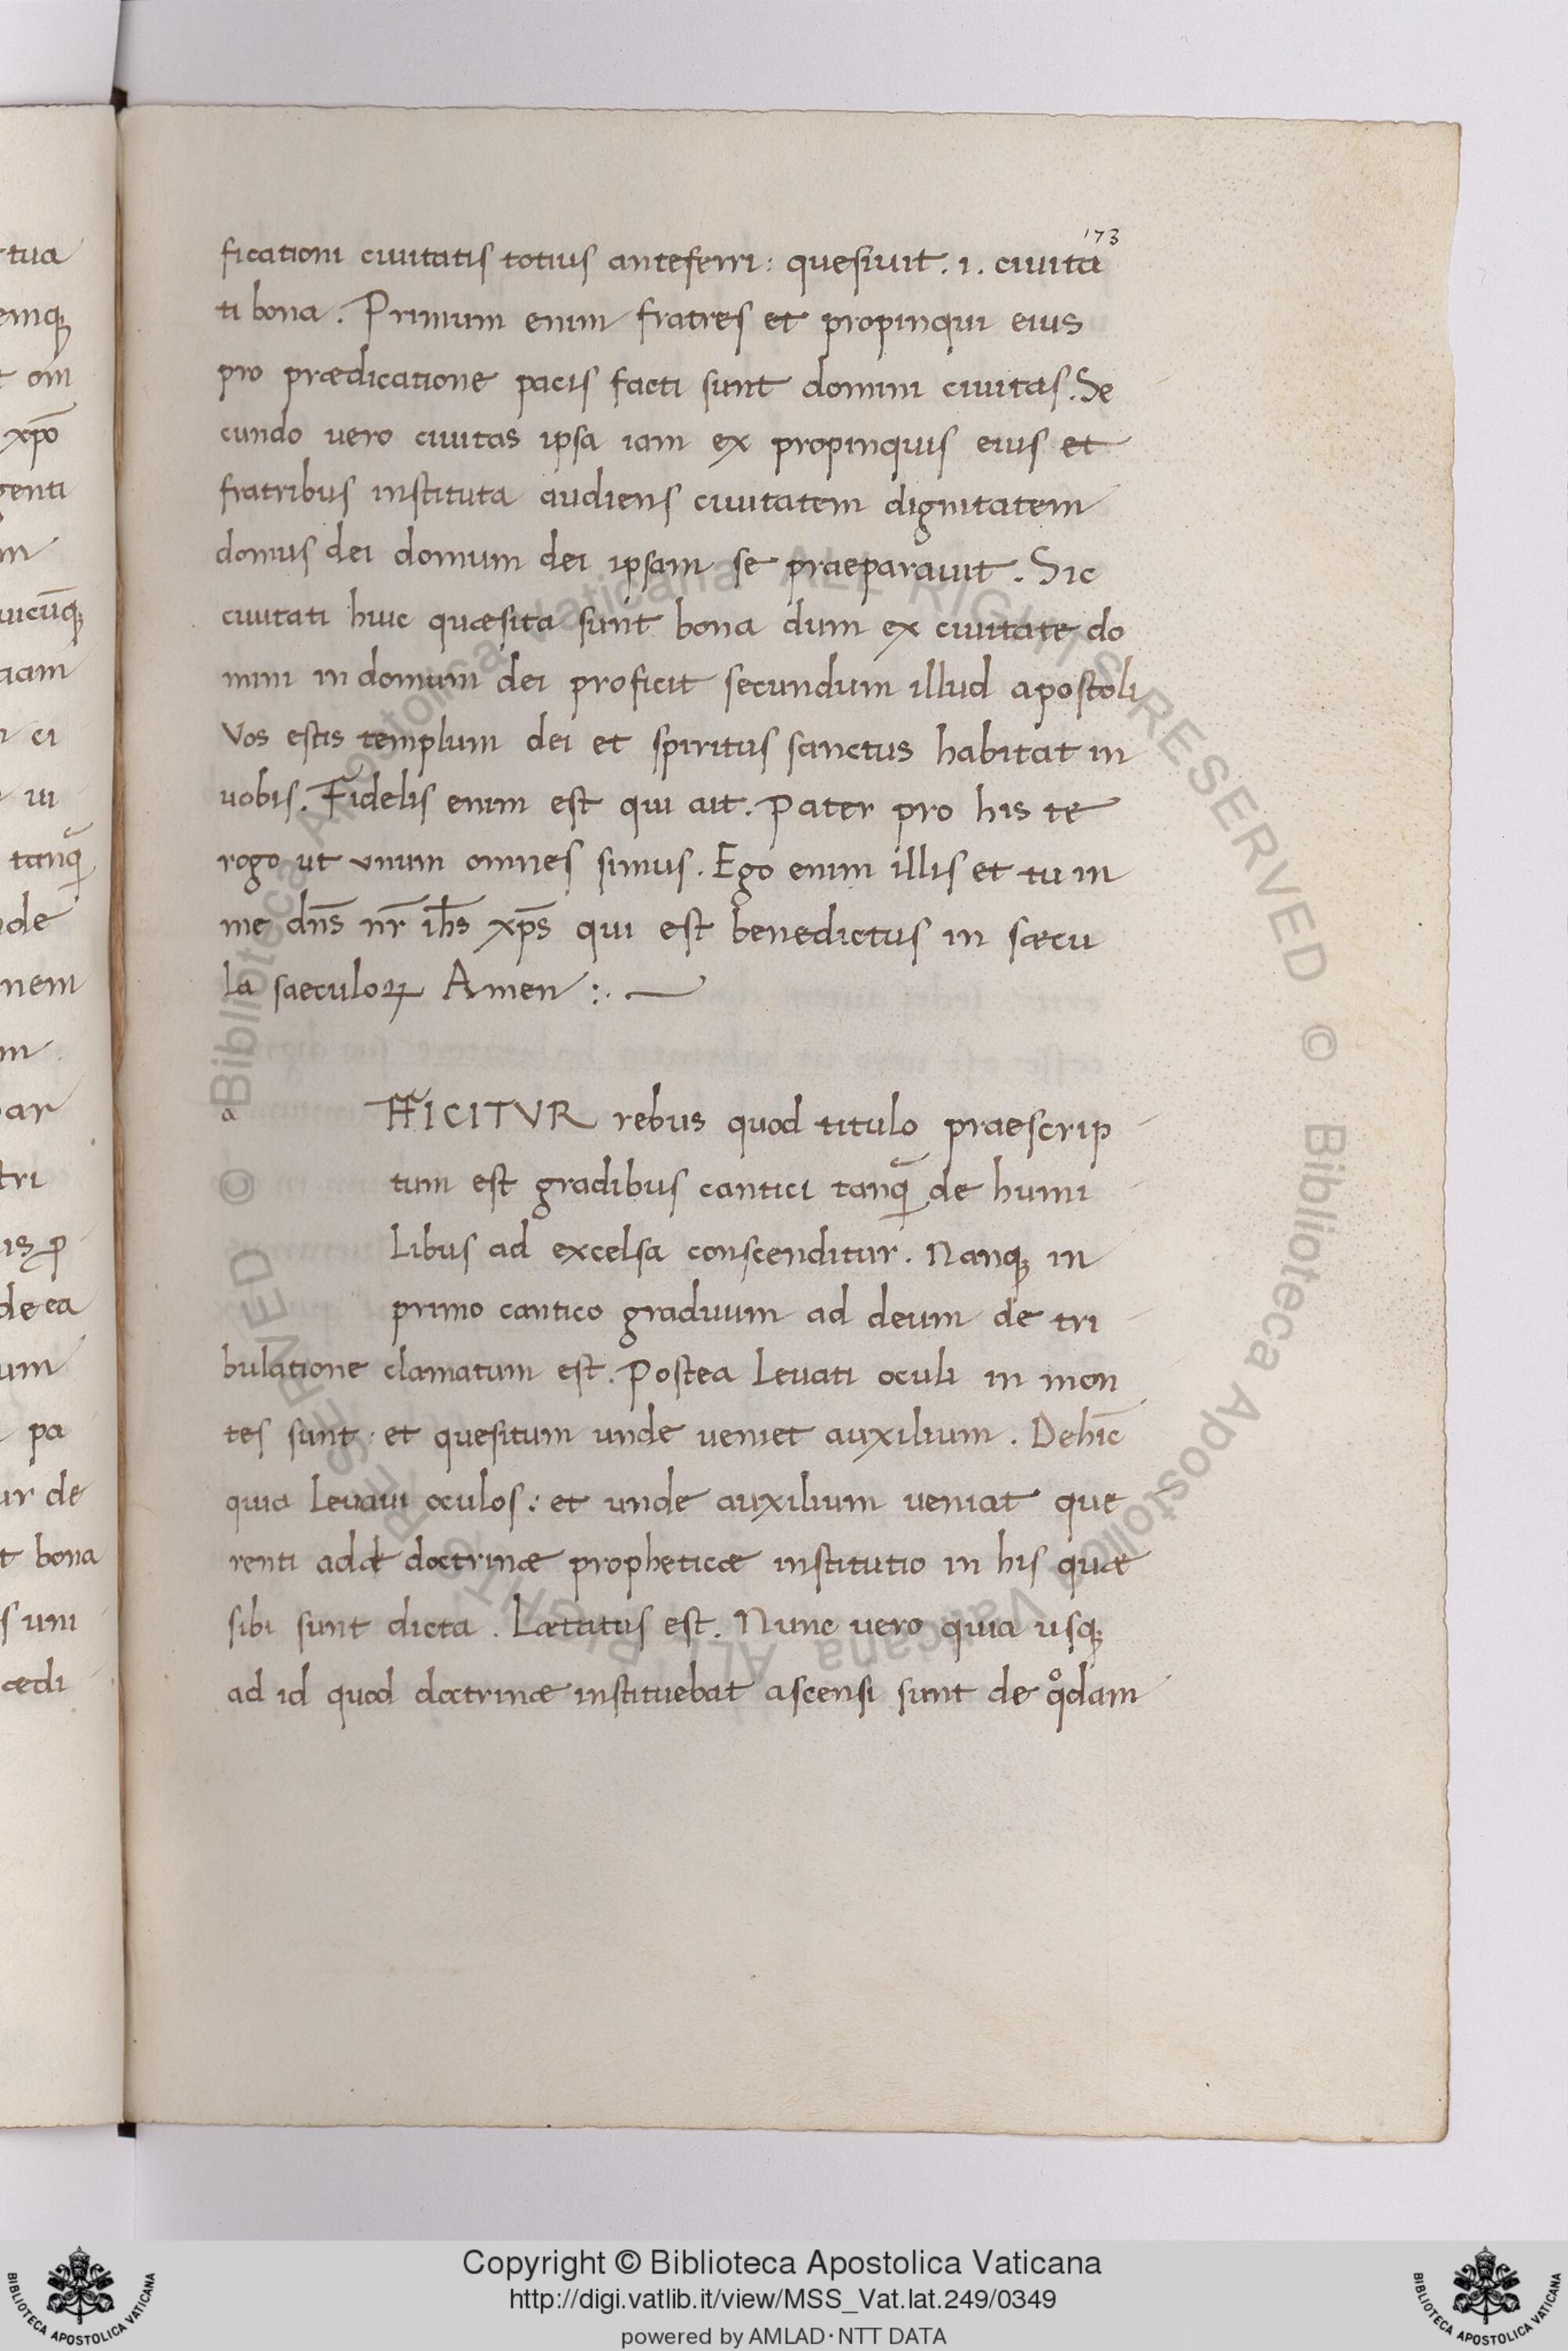 173
ficationi ciuitatis totius anteferri: quesiuit. i. ciuita
ti bona. Primum enim fratres et propinqui eius
pro prædicatione pacis facti sunt domini ciuitas. Se
cundo uero ciuitas ipsa iam ex propinquis eius et
fratribus instituta audiens ciuitatem dignitatem
domus dei domum dei ipsam se praeparauit. Sic
ciuitati huic quæsita sunt bona dum ex ciuitate do
mini in domum dei proficit secundum illud apostoli
Vos estis templum dei et spiritus sanctus habitat in
uobis. Fidelis enim est qui ait. Pater pro his te
rogo ut vnum omnes simus. Ego enim illis et tu in
me dn̄s nr̄ ih̄s xp̄s qui est benedictus in sæcu
la saeculoꝝ Amen :. —
a FFICITVR rebus quod titulo praescrip
tum est gradibus cantici tanq̃ de humi
libus ad excelsa conscenditur. Nanq; in
primo cantico graduum ad deum de tri
bulatione clamatum est. Postea leuati oculi in mon
tes sunt: et quesitum unde ueniet auxilium. Dehīc
quia leuaui oculos: et unde auxilium ueniat que
renti adest doctrinæ propheticæ institutio in his quæ
sibi sunt dicta. Lætatus est. Nunc uero quia usq;
ad id quod doctrinæ instituebat ascensi sunt de qͦdam
tua
emq;
t om̄
xp̄o
genti
m
uicūq;
aam
n ci
ui
tanq̃
nde
nem
m
par
tri
is p
de ea
um
pa
ur de
t bona
s uni
ædi
© Biblioteca Apostolica Vaticana ALL RIGHTS RESERVED © Biblioteca Apostolica Vaticana ALL RIGHTS RESERVED
Copyright © Biblioteca Apostolica Vaticana
http://digi.vatlib.it/view/MSS_Vat.lat.249/0349
powered by AMLAD·NTT DATA
BIBLIOTECA APOSTOLICA VATICANA
BIBLIOTECA APOSTOLICA VATICANA